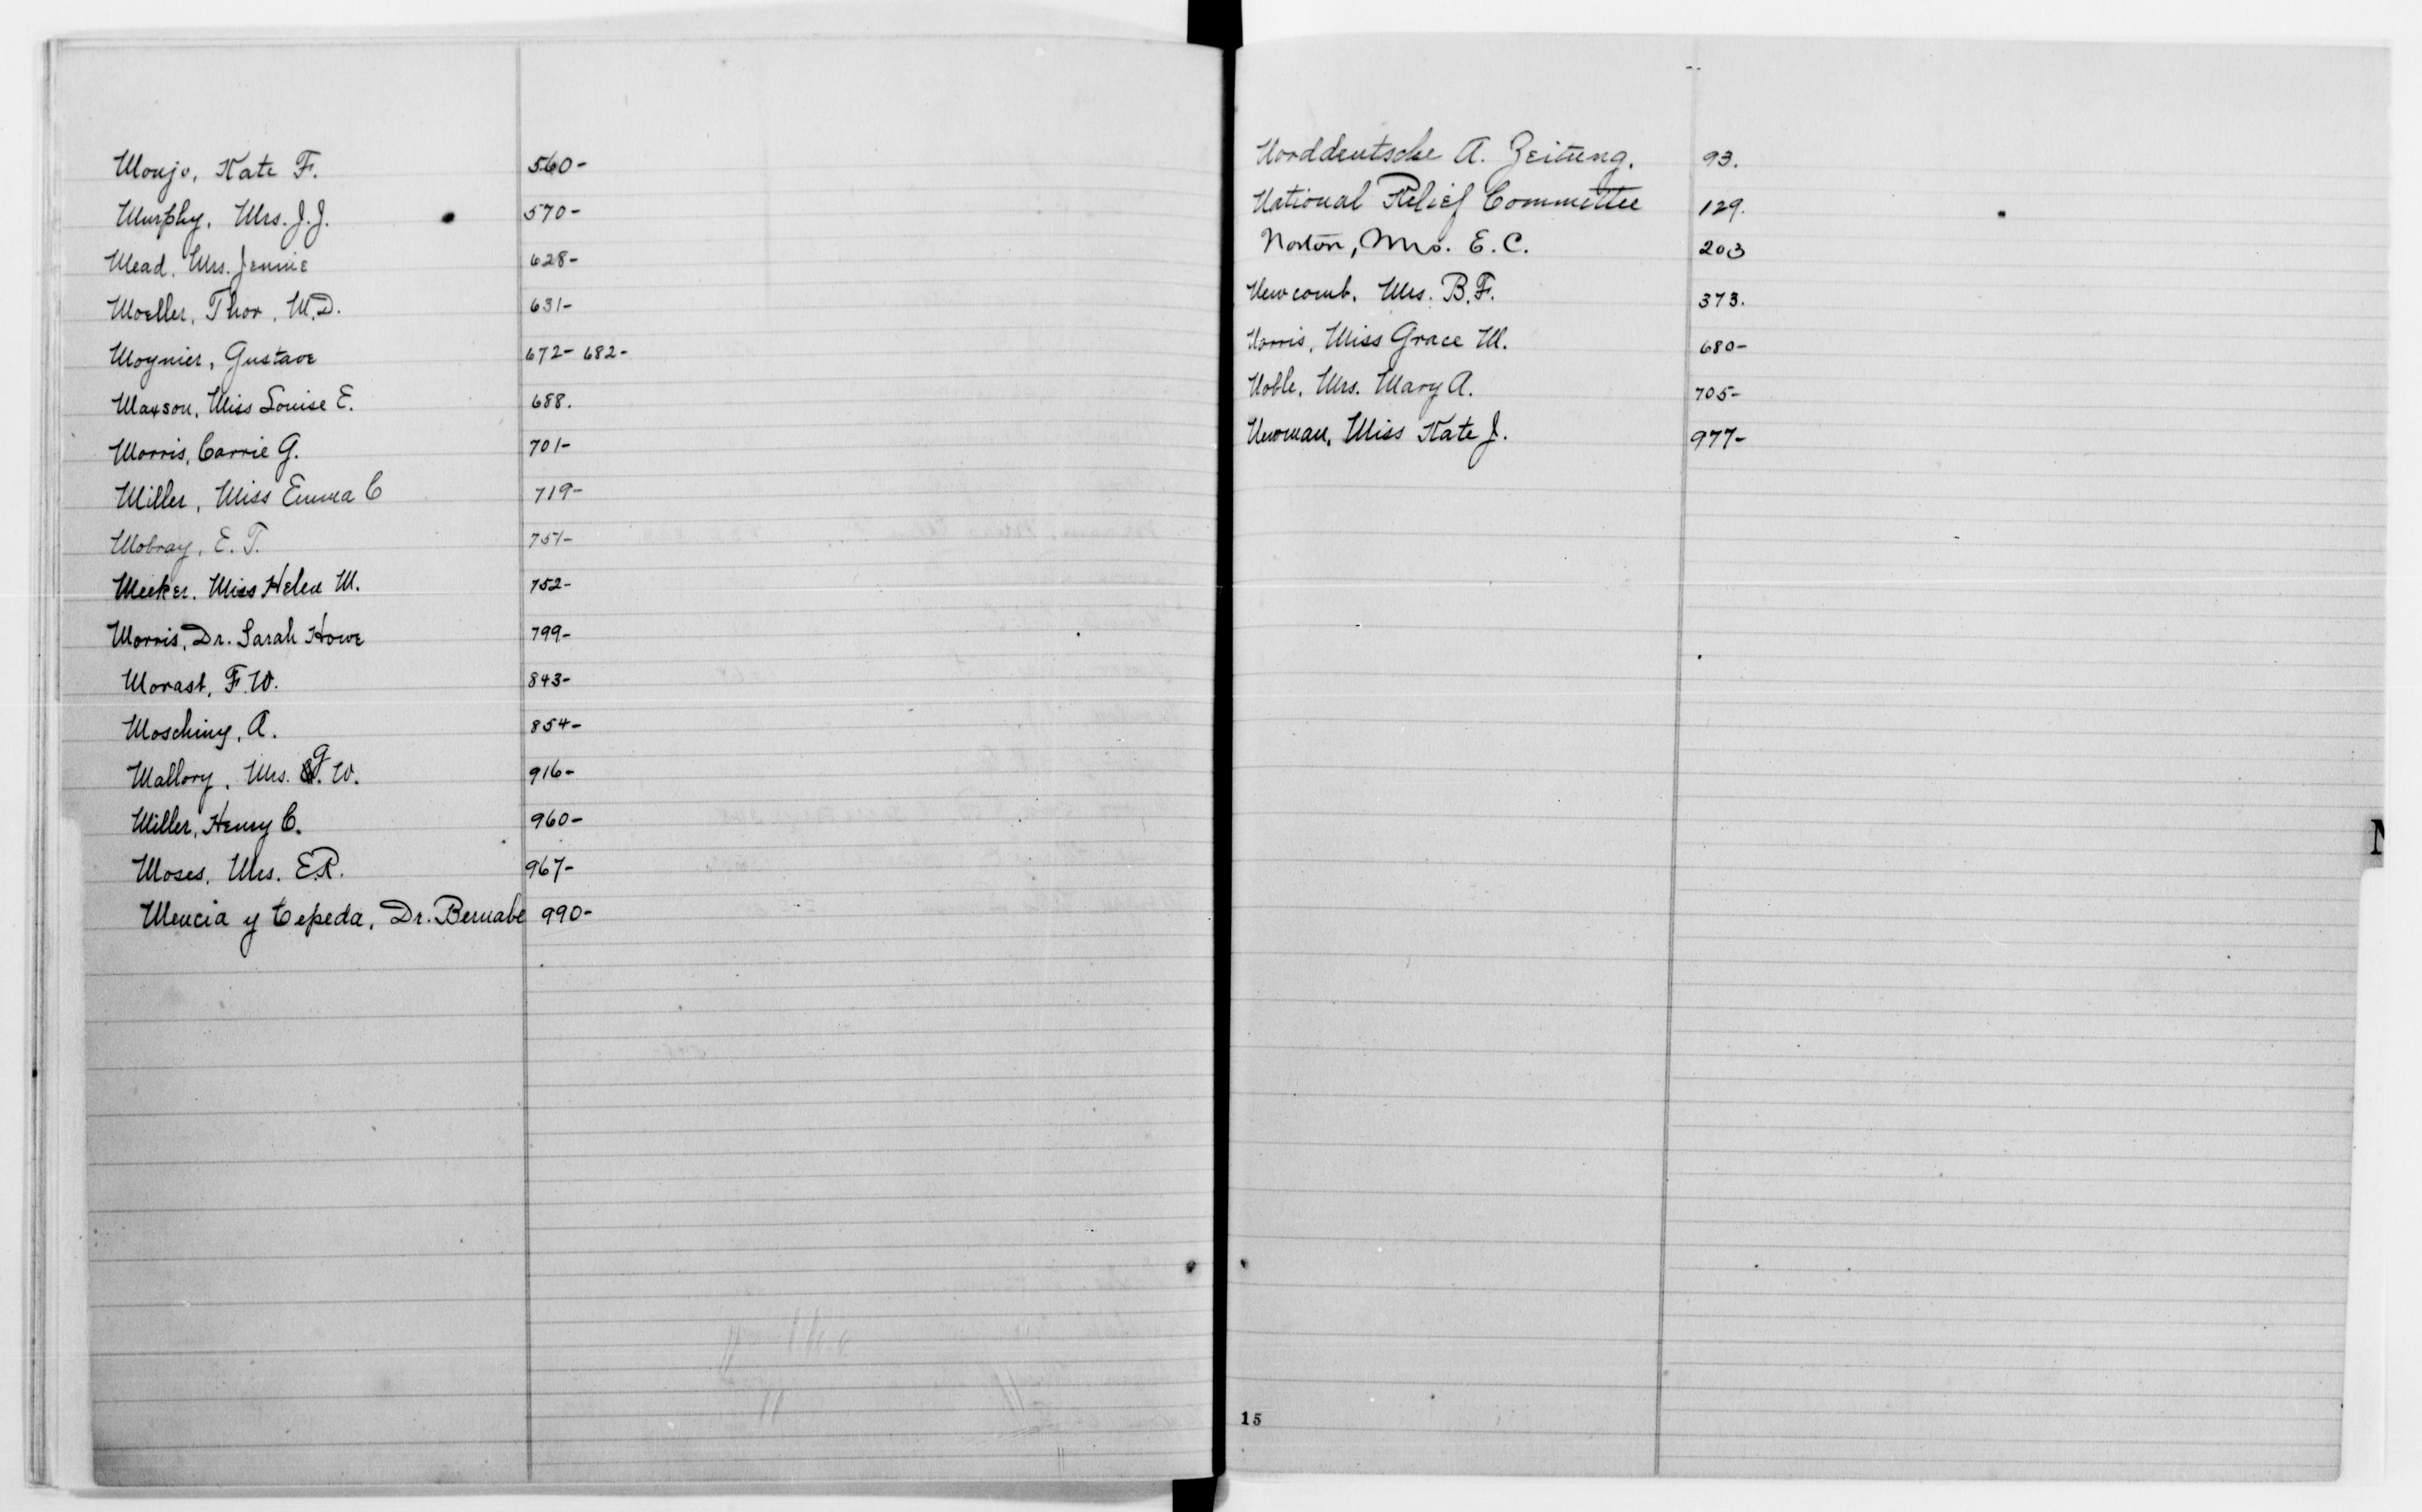 Monjo, Kate F. 560-
Murphy, Mrs. J. J. 570-
Mead, Mrs. Jennie 628-
Moeller, Thor, M.D. 631-
Moynier, Gustave 672- 682-
Maxson, Miss Louise E. 688.
Morris, Carrie G. 701-
Miller, Miss Emma C 719-
Mobray, E. T. 751-
Meeker. Miss Helen M. 752-
Morris, Dr. Sarah Howe 799-
Morast, F. W. 843-
Mosching, A. 854-
Mallory, Mrs. G. W. 916-
Miller, Henry C. 960-
Moses, Mrs. E.R. 967-
Mencia y Cepeda, Dr. Bernabe 990-
Norddeutsche A. Zeitung. 93.
National Relief Committee 129.
Norton, Mrs. E. C. 203
Newcomb, Mrs. B. F. 373.
Norris, Miss Grace M. 680-
Noble, Mrs. Mary A. 705-
Newman, Miss Kate J. 977-
N
15